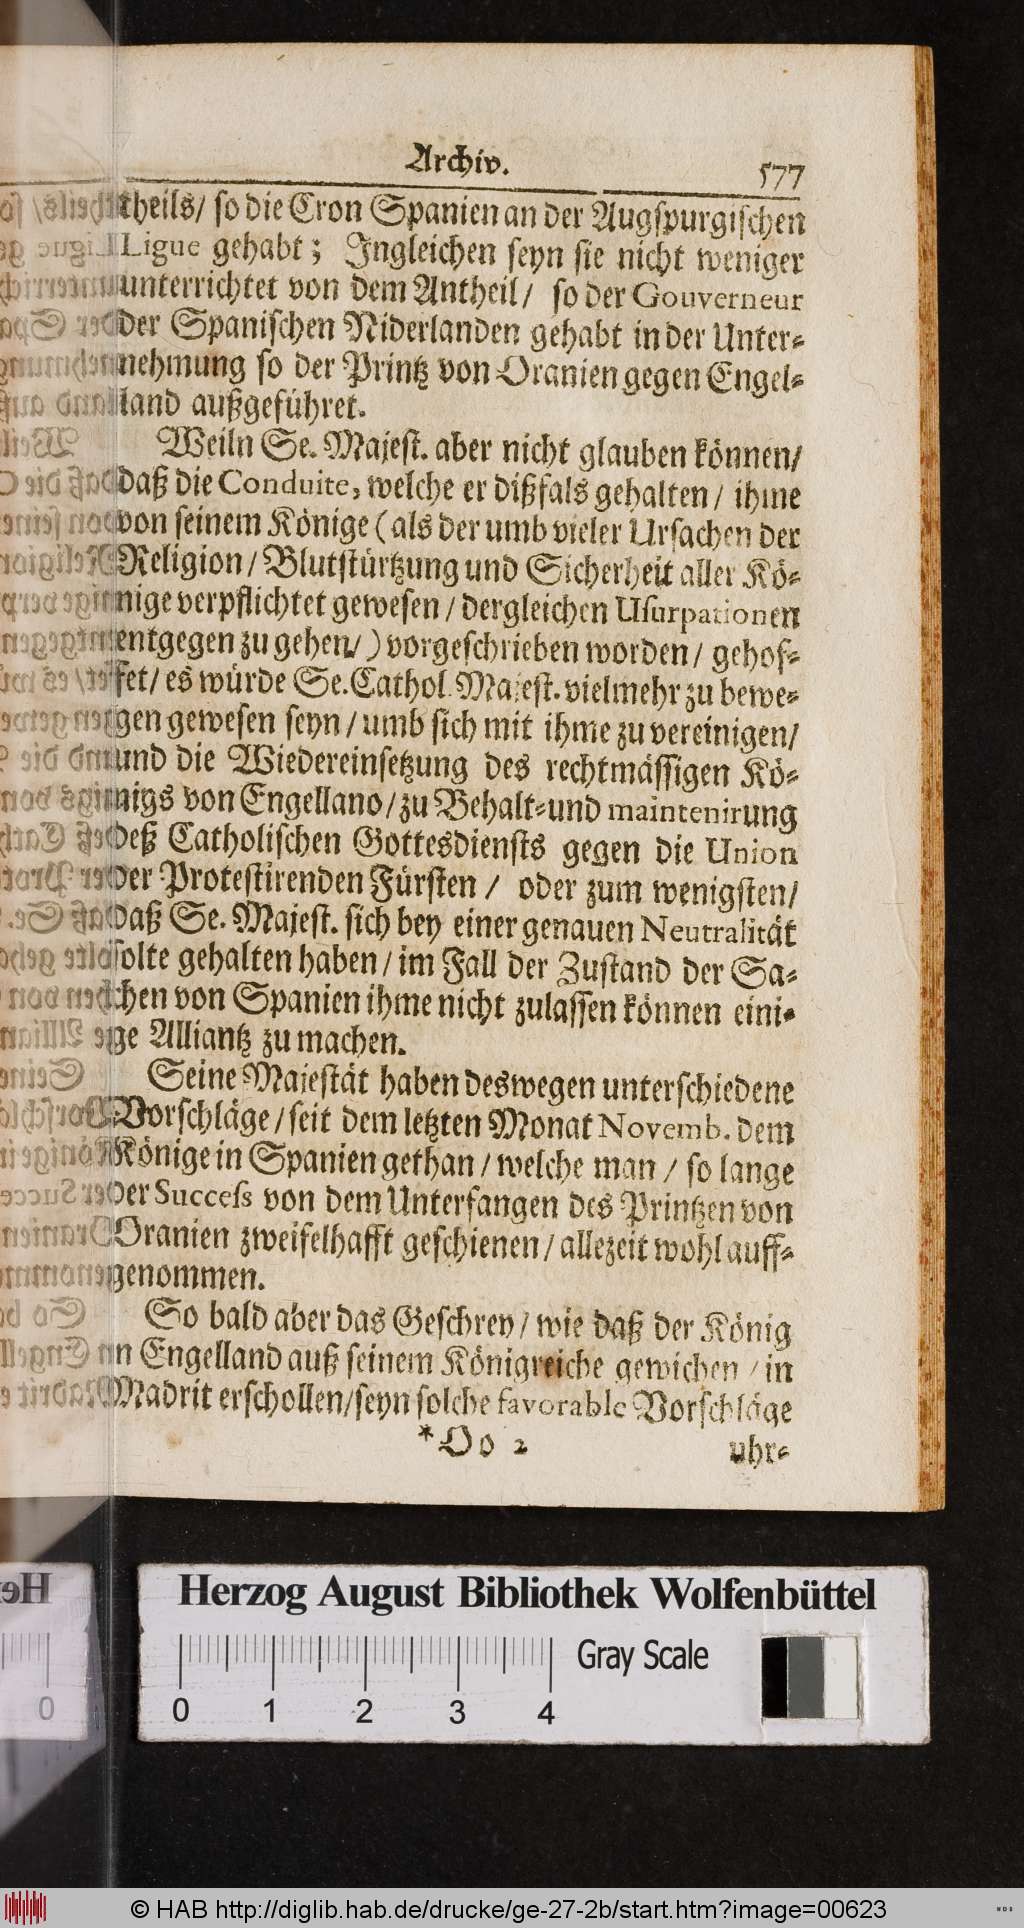 Archiv.
577
theils/ so die Cron Spanien an der Augspurgischen
Ligue gehabt; Ingleichen seyn sie nicht weniger
unterrichtet von dem Antheil/ so der Gouverneur
der Spanischen Niderlanden gehabt in der Unter-
nehmung so der Printz von Oranien gegen Engel-
land außgeführet.
Weiln Se. Majest. aber nicht glauben können/
daß die Conduite, welche er dißfals gehalten/ ihme
von seinem Könige (als der umb vieler Ursachen der
Religion/ Blutstürtzung und Sicherheit aller Kö-
nige verpflichtet gewesen/ dergleichen Usurpationen
entgegen zu gehen/) vorgeschrieben worden/ gehof-
fet/ es würde Se. Cathol. Majest. vielmehr zu bewe-
gen gewesen seyn/ umb sich mit ihme zu vereinigen/
und die Wiedereinsetzung des rechtmässigen Kö-
nigs von Engelland/ zu Behalt- und maintenirung
deß Catholischen Gottesdiensts gegen die Union
der Protestirenden Fürsten/ oder zum wenigsten/
daß Se. Majest. sich bey einer genauen Neutralität
solte gehalten haben/ im Fall der Zustand der Sa-
chen von Spanien ihme nicht zulassen können eini-
ge Alliantz zu machen.
Seine Majestät haben deswegen unterschiedene
Vorschläge/ seit dem letzten Monat Novemb. dem
Könige in Spanien gethan/ welche man/ so lange
der Success von dem Unterfangen des Printzen von
Oranien zweifelhafft geschienen/ allezeit wohl auff-
genommen.
So bald aber das Geschrey/ wie daß der König
in Engelland auß seinem Königreiche gewichen/ in
Madrit erschollen/ seyn solche favorable Vorschläge
*Oo 2
uhr-
Herzog August Bibliothek Wolfenbüttel
0 1 2 3 4
Gray Scale
© HAB http://diglib.hab.de/drucke/ge-27-2b/start.htm?image=00623